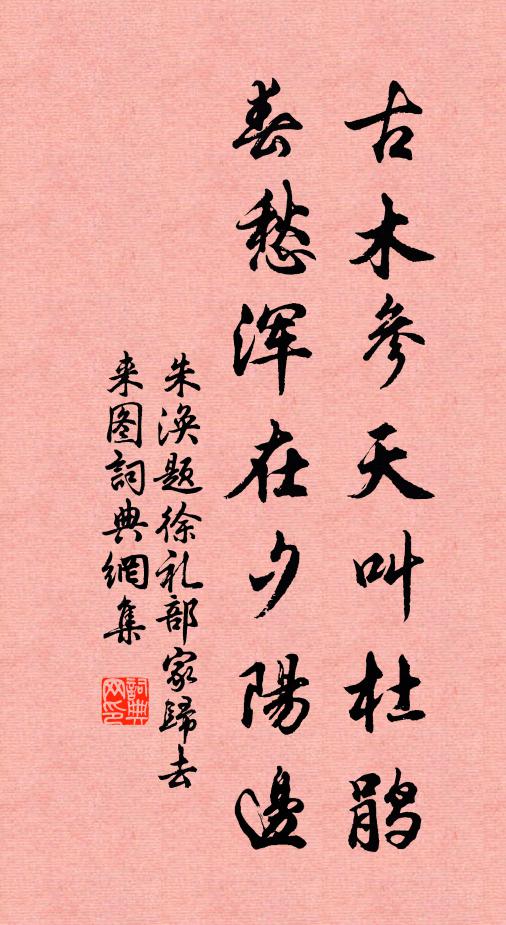 古木参天叫杜鹃
春愁浑在夕陽邊
朱涣题徐礼部家歸去
来图詞典網集
詞典网印